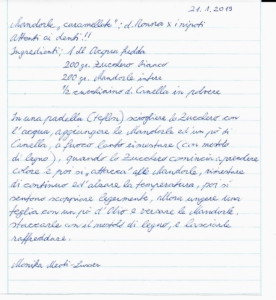 21.1.2013
Mandorle "caramellate": d. Nonna x i nipoti
Attenti ai denti!!
Ingredienti: 1 dl Acqua fredda
200 gr. Zucchero bianco
200 gr. Mandorle intere
1/2 cucchiaino d. Canella in polvere
In una padella (Teflon) sciogliere lo Zucchero con
l'acqua, aggiungere le Mandorle ed un pò di
Canella, a fuoco lento rimestare (con mestolo
di legno), quando lo Zucchero comincia a prendere
colore e poi si "attacca" alle Mandorle, rimestare
di continuo ed alzare la temperatura, poi si
sentono scoppiare legermente, allora ungere una
teglia con un pò d'Olio e versare le Mandorle.
staccarle con il mestolo di legno, e lasciarle
raffreddare.
Monika